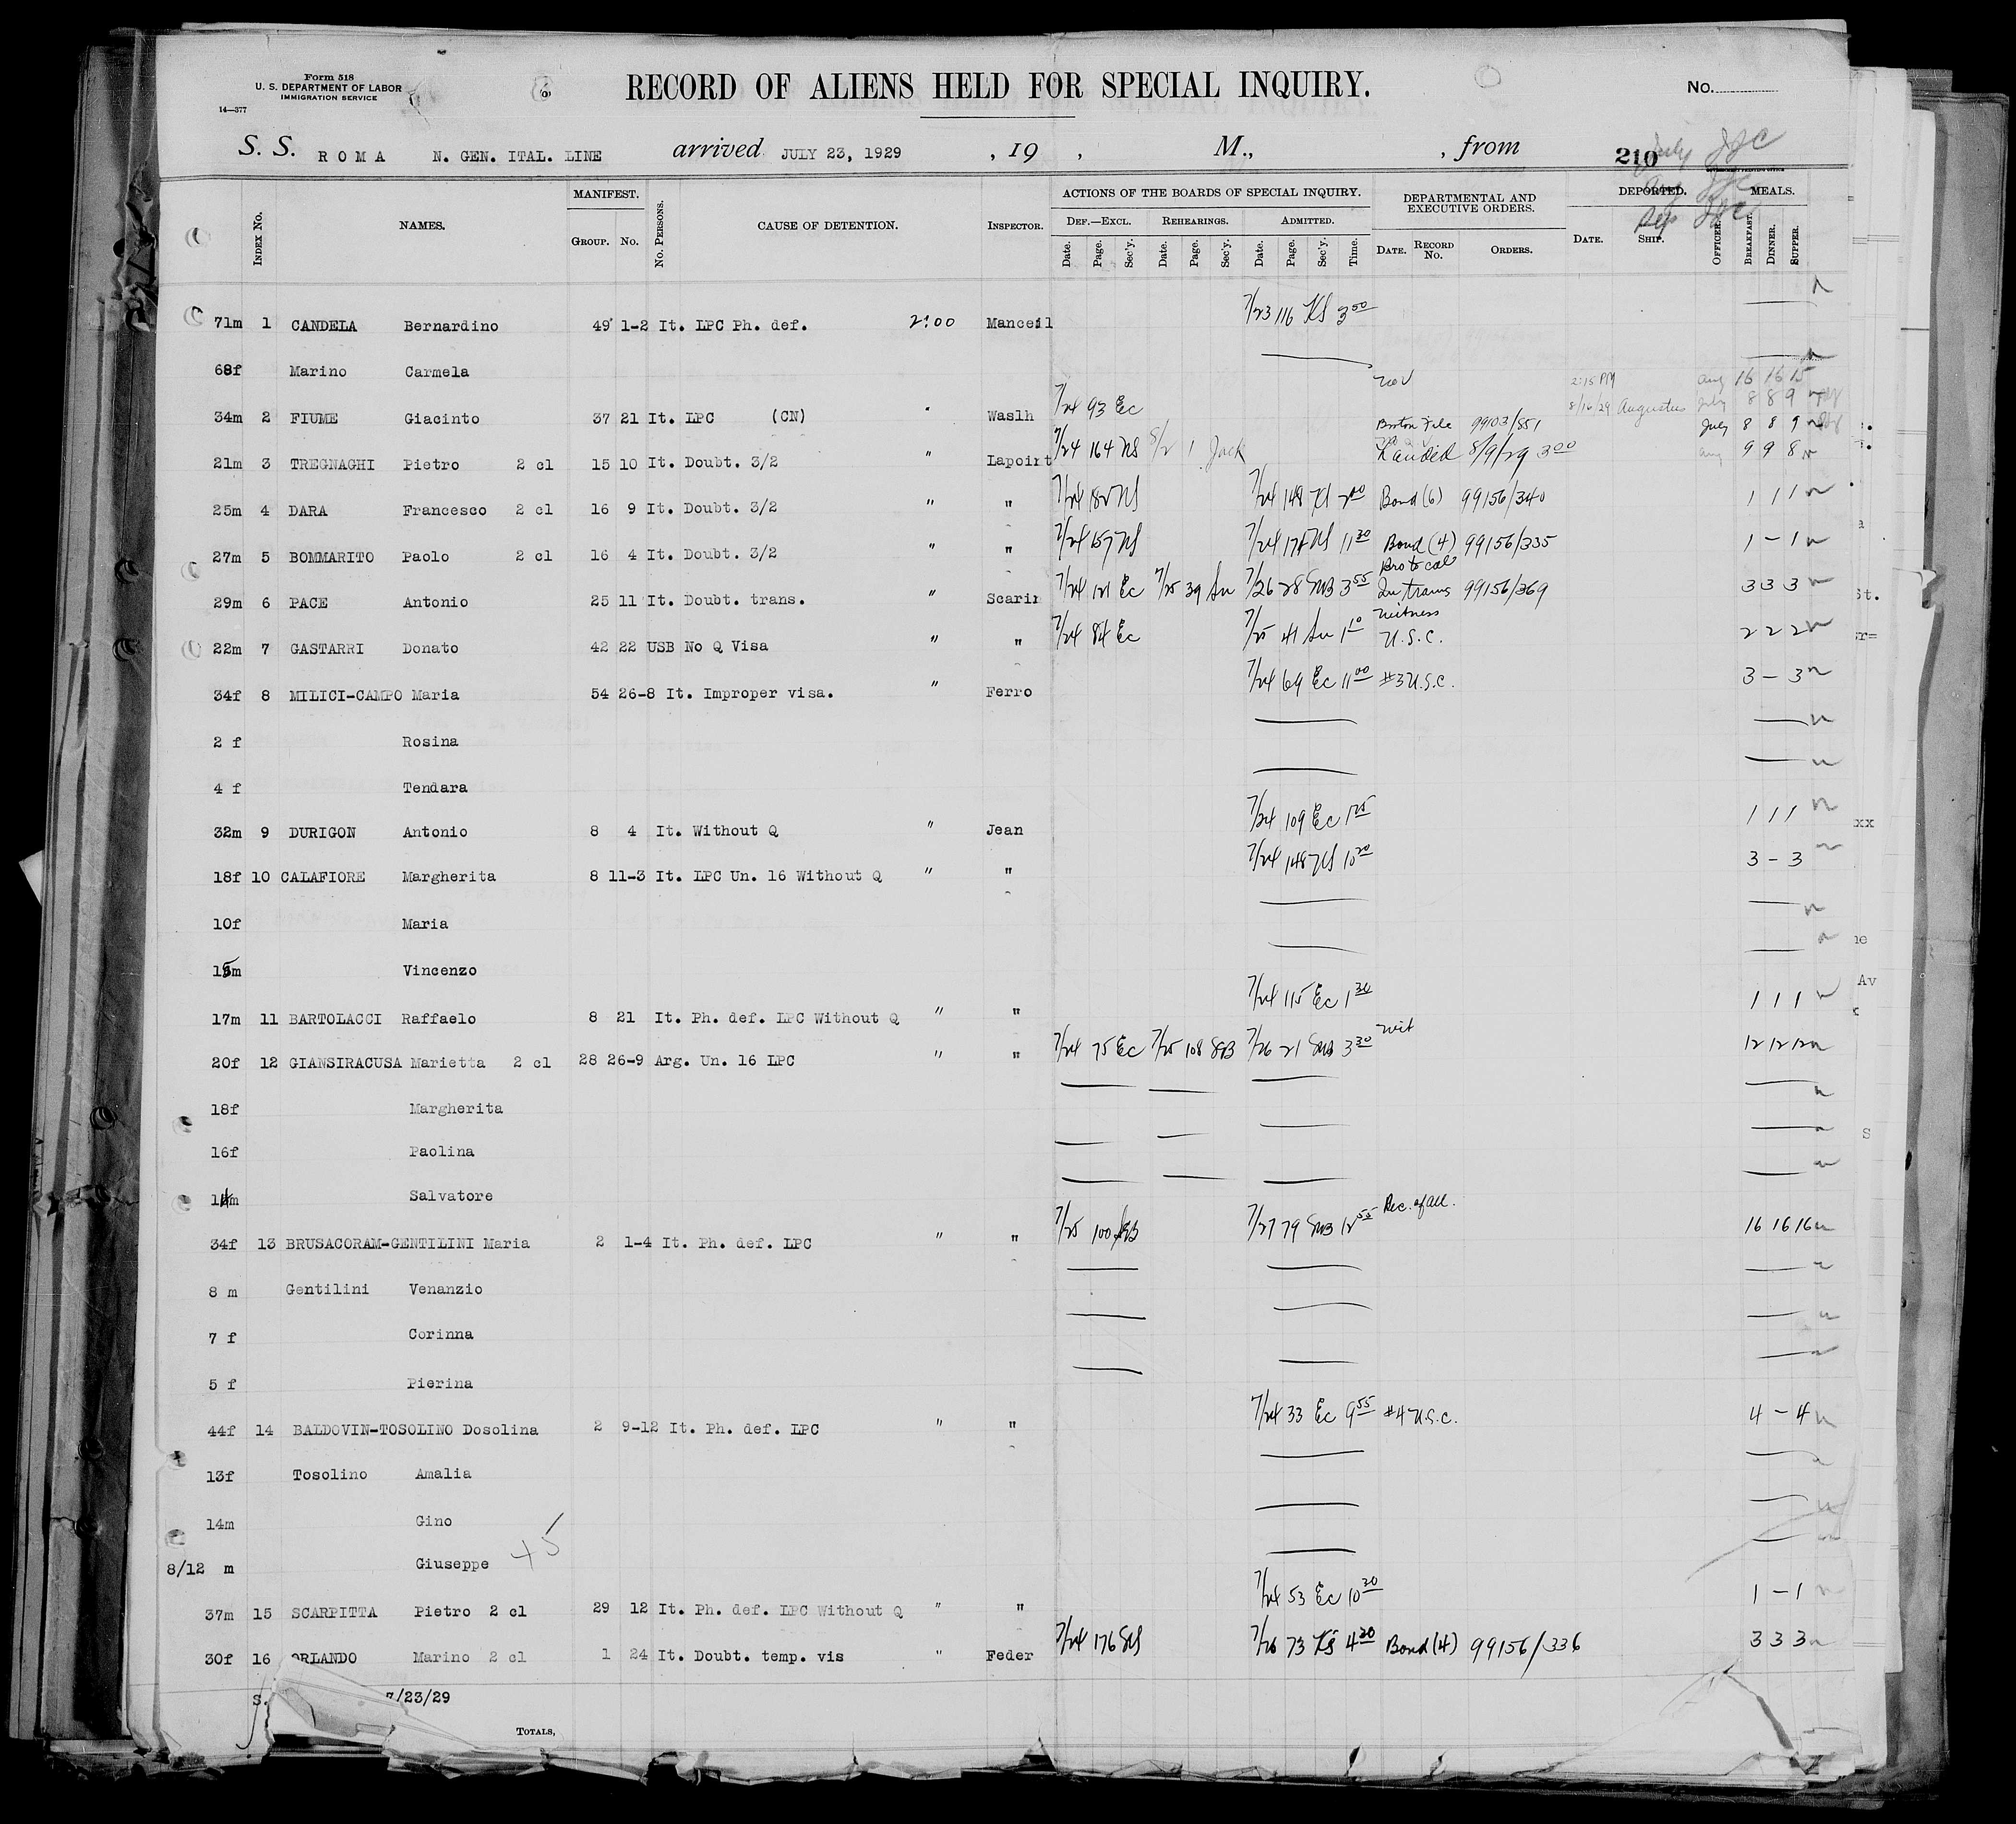 Form 518
U. S. DEPARTMENT OF LABOR
IMMIGRATION SERVICE
14—377
RECORD OF ALIENS HELD FOR SPECIAL INQUIRY.
No.
S. S. ROMA N. GEN. ITAL. LINE arrived JULY 23, 1929 , 19 , M., , from 210
INDEX No. NAMES. MANIFEST. GROUP. No. No. PERSONS. CAUSE OF DETENTION. INSPECTOR. ACTIONS OF THE BOARDS OF SPECIAL INQUIRY. DEF.—EXCL. Date. Page. Sec'y. REHEARINGS. Date. Page. Sec'y. ADMITTED. Date. Page. Sec'y. Time. DEPARTMENTAL AND EXECUTIVE ORDERS. DATE. RECORD No. ORDERS. DEPORTED. DATE. SHIP. OFFICER. MEALS. BREAKFAST. DINNER. SUPPER.
71m 1 CANDELA Bernardino 49 1-2 It. LPC Ph. def. 2:00 Manceil 7/23 116 KS 3 50
68f Marino Carmela
2:15 PM Aug 16 16 15
34m 2 FIUME Giacinto 37 21 It. LPC (CN) Waslh 7/24 93 Ec 8/16/29 Augustus July 8 8 9
Boston File 99103/851 July 8 8 9
21m 3 TREGNAGHI Pietro 2 cl 15 10 It. Doubt. 3/2 " Lapoint 7/24 164 NS 8/2 1 Jack Landed 8/9/29 3 00 Aug 9 9 8
25m 4 DARA Francesco 2 cl 16 9 It. Doubt. 3/2 " " 7/24 182 NS 7/24 148 KS 2 00 Bond (6) 99156/340 1 1 1
27m 5 BOMMARITO Paolo 2 cl 16 4 It. Doubt. 3/2 " " 7/24 157 NS 7/24 178 NS 11 30 Bond (4) 99156/335 1 - 1
Bro to call
29m 6 PACE Antonio 25 11 It. Doubt. trans. " Scarin 7/24 121 Ec 7/25 39 Sn 7/26 28 SMB 3 55 In trans 99156/369 3 3 3
witness
22m 7 GASTARRI Donato 42 22 USB No Q Visa " " 7/24 84 Ec 7/25 41 Sn 1 10 U.S.C. 2 2 2
34f 8 MILICI-CAMPO Maria 54 26-8 It. Improper visa. " Ferro 7/24 69 Ec 11 00 #3 U.S.C. 3 - 3
2 f Rosina
4 f Tendara
32m 9 DURIGON Antonio 8 4 It. Without Q " Jean 7/24 109 Ec 1 25 1 1 1
18f 10 CALAFIORE Margherita 8 11-3 It. LPC Un. 16 Without Q " " 7/24 148 NS 10 20 3 - 3
10f Maria
15m Vincenzo
17m 11 BARTOLACCI Raffaelo 8 21 It. Ph. def. LPC Without Q " " 7/24 115 Ec 1 30 1 1 1
wit
20f 12 GIANSIRACUSA Marietta 2 cl 28 26-9 Arg. Un. 16 LPC " " 7/24 75 Ec 7/25 108 SB 7/26 21 SMB 3 30 12 12 12
18f Margherita
16f Paolina
14m Salvatore
Rec. of all.
34f 13 BRUSACORAM-GENTILINI Maria 2 1-4 It. Ph. def. LPC " " 7/25 100 SB 7/27 79 SMB 12 55 16 16 16
8 m Gentilini Venanzio
7 f Corinna
5 f Pierina
44f 14 BALDOVIN-TOSOLINO Dosolina 2 9-12 It. Ph. def. LPC " " 7/24 33 Ec 9 55 #4 U.S.C. 4 - 4
13f Tosolino Amalia
14m Gino
8/12 m Giuseppe 45
37m 15 SCARPITTA Pietro 2 cl 29 12 It. Ph. def. LPC Without Q " " 7/24 53 Ec 10 30 1 - 1
30f 16 ORLANDO Marino 2 cl 1 24 It. Doubt. temp. vis " Feder 7/24 176 NS 7/26 73 KS 4 20 Bond (4) 99156/336 3 3 3
S. 7/23/29
TOTALS,